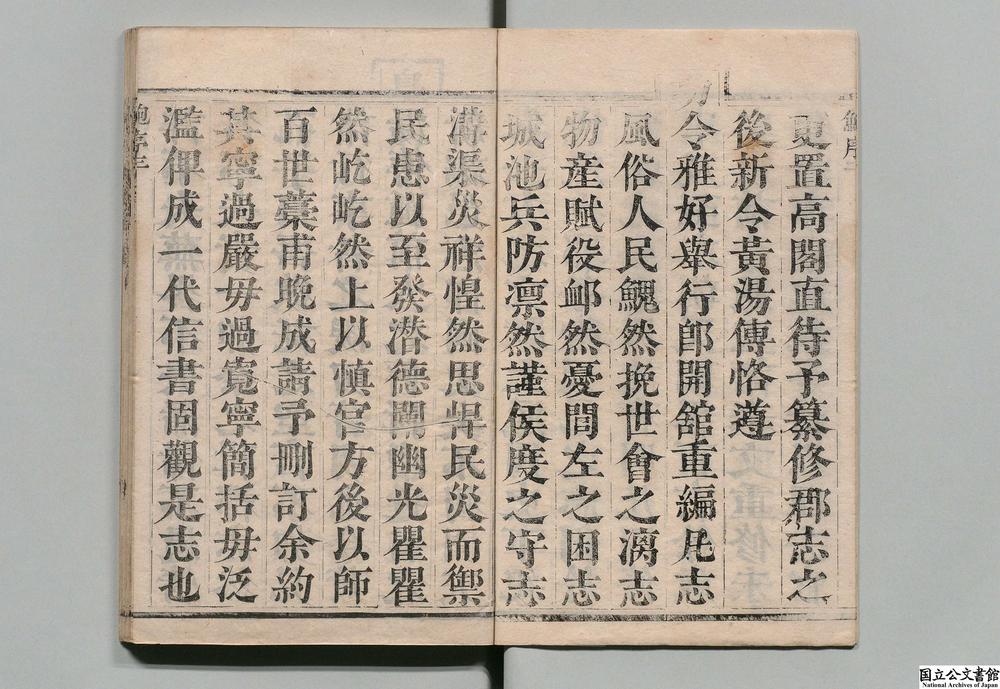 更置高閣直待予纂修郡志之
後新令黃湯傳恪遵
令雅好舉行郎開舘重編凡志
風俗人民鰓然挽世會之漓志
物産賦役衈然憂閭左之困志
城池兵防凛然謹侯度之守志
溝渠災祥惶然思捍民災而禦
民患以至發潜德闡幽光瞿瞿
然屹屹然上以慎官方後以師
百世藁甫晩成請予刪訂余約
其寧過嚴毋過寛寧簡括毋泛
濫俾成一代信書固觀是志也
国立公文書館
National Archives of Japan